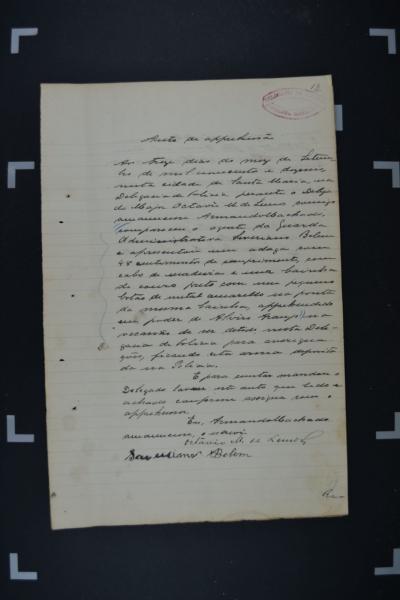 13
Auto de apprehensão
Aos treze dias do mez de Setem-
bro de mil novecentos e dezeseis,
nesta cidade de Santa Maria, na
Delegacia de policia presente o Delega-
do Major Octavio M. de Lemos commigo
amanuense Armando Machado,
compareceu o agente da Guarda
Administrativa Severiano Belem
e apresentou uma adaga com
48 centimetros de comprimento, com
cabo de madeira e uma bainha
de couro preto com um pequeno
botão de metal amarello na ponta
da mesma bainha, apprehendida
em poder de Alvaro Araujo na
occasião de ser detido nesta Dele-
gacia de policia para averigua-
ções, ficando esta arma deposita-
da na Policia.
E para constar mandou o
Delegado lavrar este auto que lido e
achado conforme assigna com o
apprehensor.
Eu, Armando Machado
amanuense, o escrevi
Octavio M. de Lemos
Severiano Belem